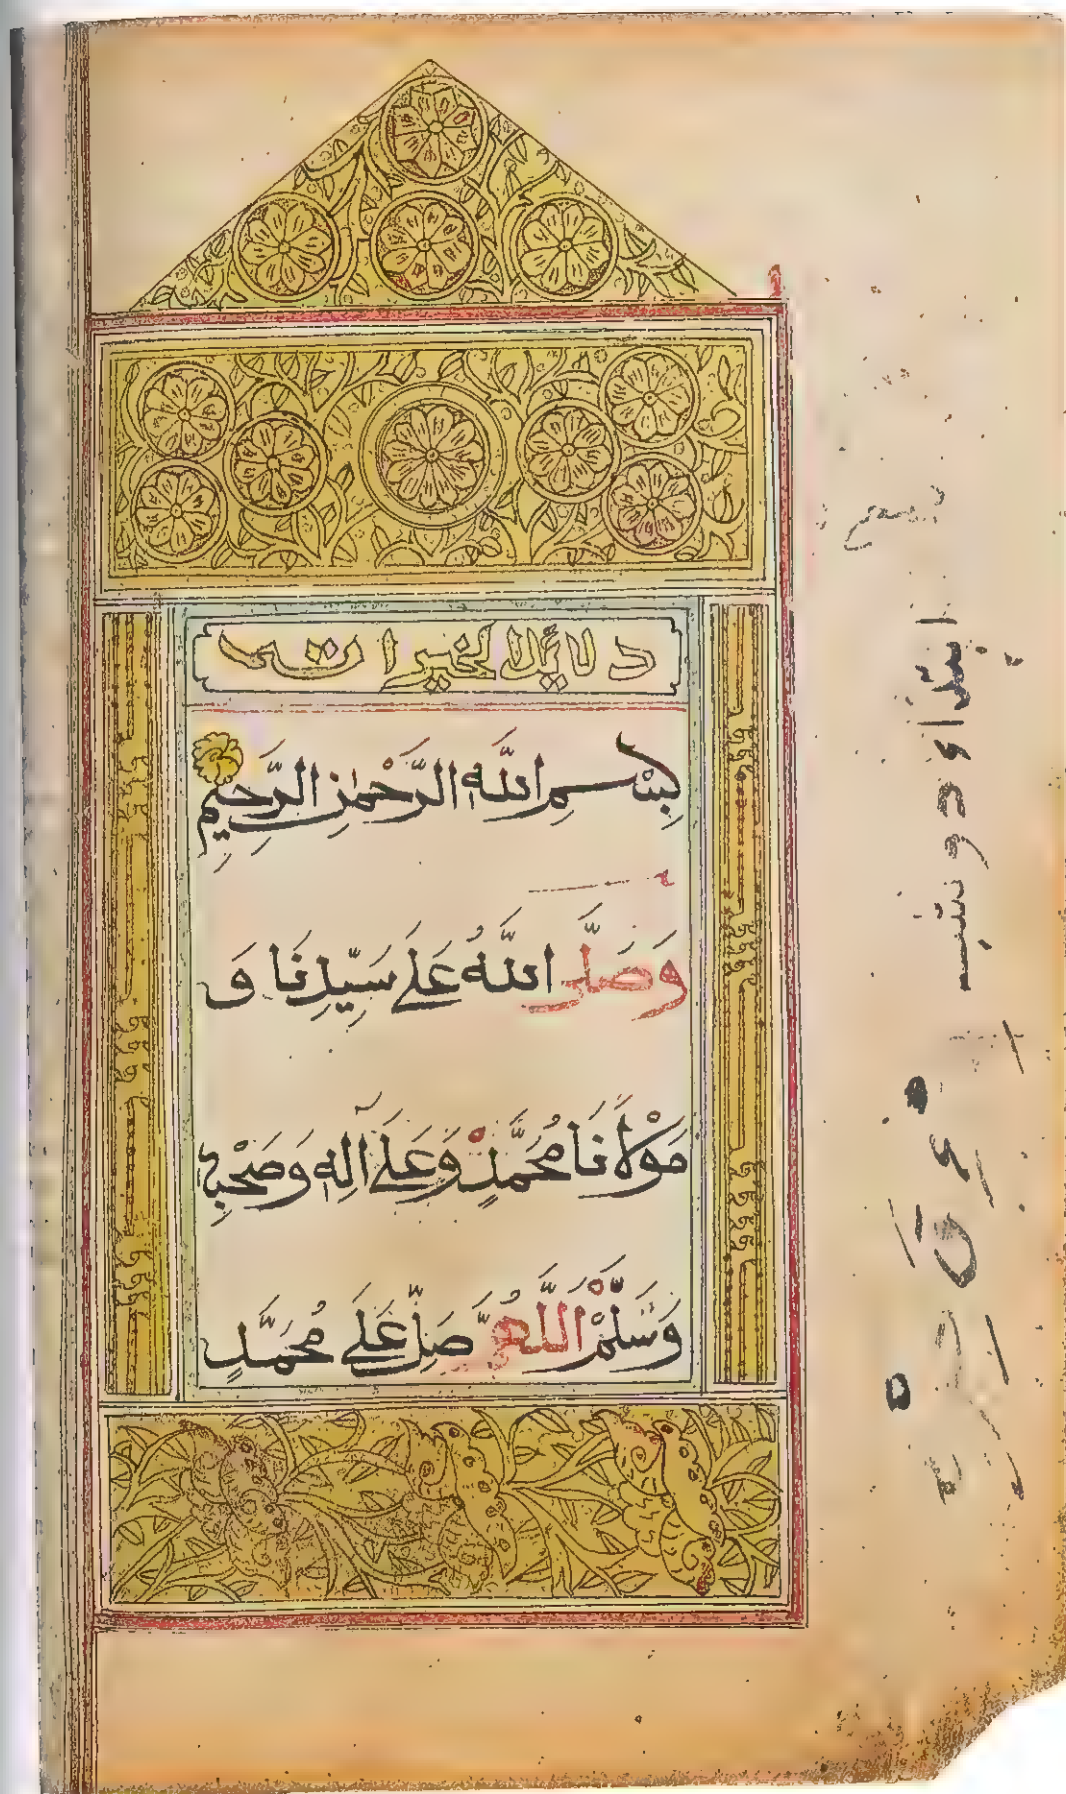 دلائل الخيرات
بِسْمِ اللَّهِ الرَّحْمٰنِ الرَّحِيمِ
وَصَلَّى اللَّهُ عَلَى سَيِّدِنَا وَ
مَوْلَانَا مُحَمَّدٍ وَعَلَى آلِهِ وَصَحْبِهِ
وَسَلَّمْ اللَّهُمَّ صَلِّ عَلَى مُحَمَّدٍ